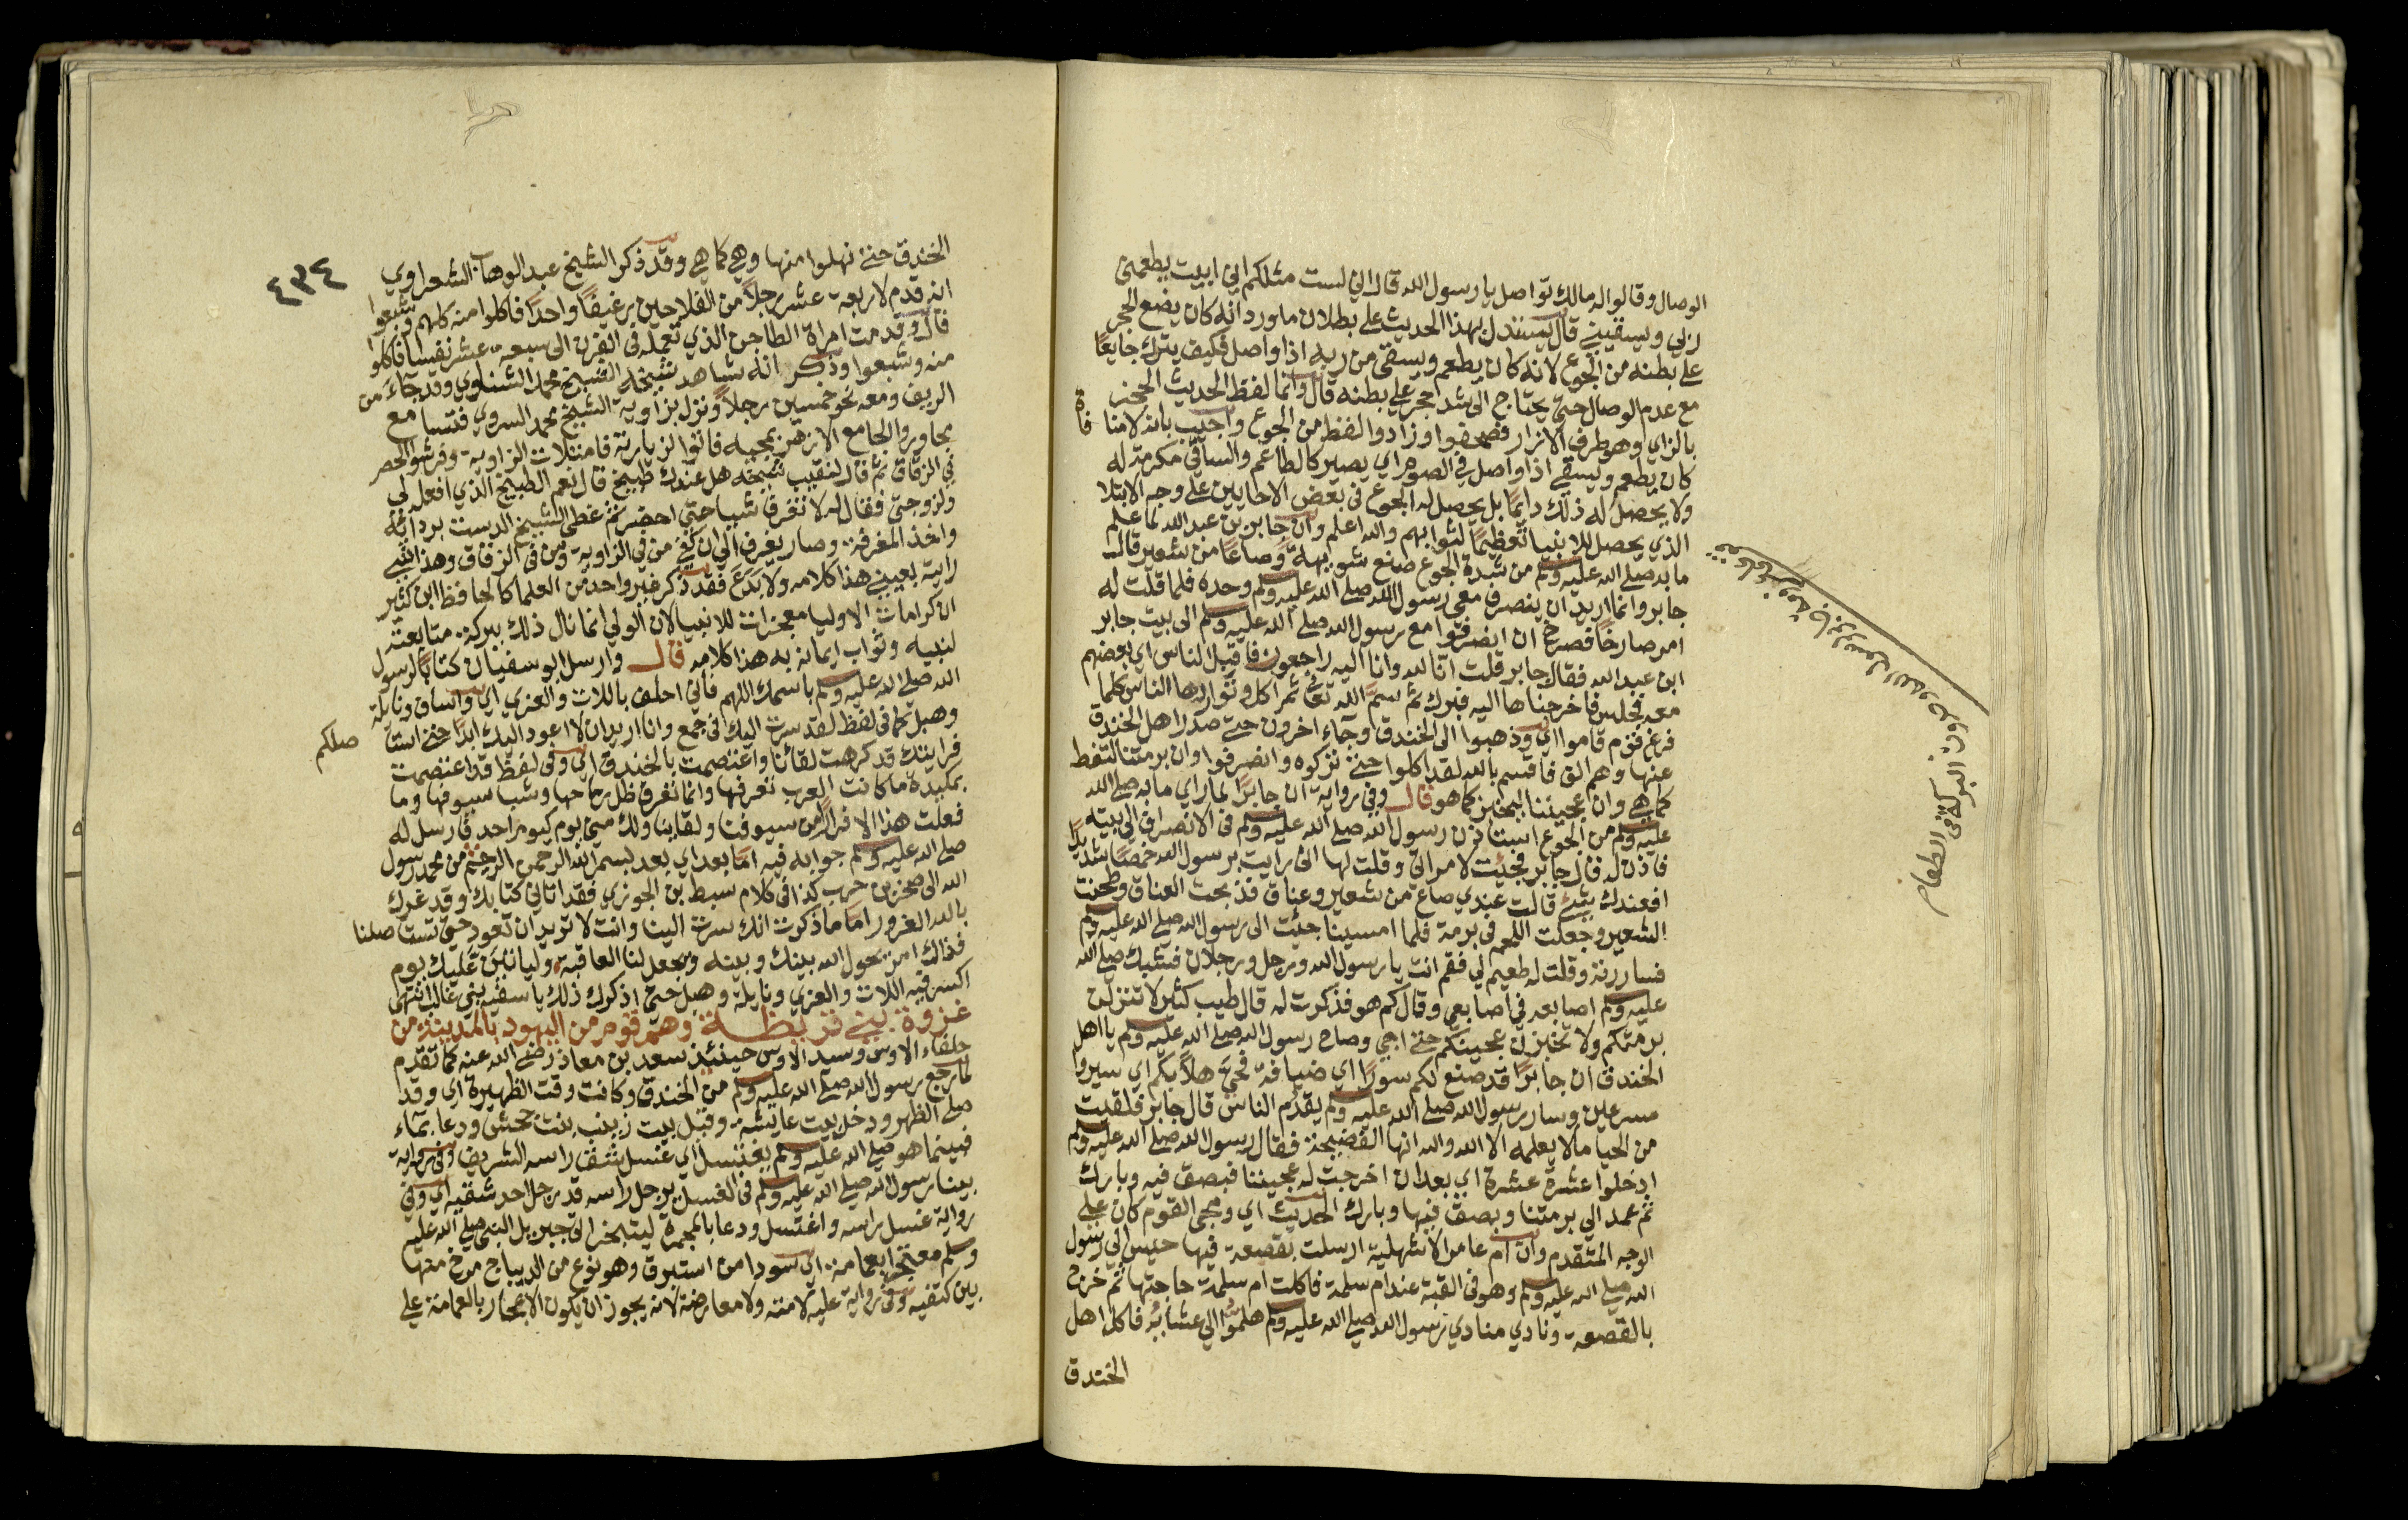 الوصال وقالوا له مالك تواصل يا رسول الله قال اني لست مثلكم اني ابيت يطعمني
ربي ويسقيني قال يستدل بهذا الحديث على بطلان ما ورد انه كان يضع الحجر
على بطنه من الجوع لانه كان يطعم ويسقى من ربه اذا واصل فكيف يترك جايعا
مع عدم الوصال حتى يحتاج الى شد الحجر على بطنه قال وانما لفظ الحديث الحجز
بالزاي وهو طرف الازار فصحفوا وزادوا لفظ من الجوع واجيب بانه لا منافاة
كان يطعم ويسقى اذا واصل في الصوم اي يصير كالطاعم والساقي مكرمة له
ولا يحصل له ذلك دايما بل يحصل له الجوع في بعض الاحايين على وجه الابتلا
الذي يحصل للانبيا تعظيما لثوابهم والله اعلم وان جابر بن عبد الله لما علم
ما به صلى الله عليه وسلم من شدة الجوع صنع شويهة وصاعا من شعير قال
جابر وانما اريد ان ينصرف معي رسول الله صلى الله عليه وسلم وحده فلما قلت له
امر صارخا فصرخ ان انصرفوا مع رسول الله صلى الله عليه وسلم الى بيت جابر
ابن عبد الله فقال جابر قلت انا لله وانا اليه راجعون فاقبل الناس اي بعضهم
معه فجلس فاخرجناها اليه فبرك ثم سمى الله تعالى ثم اكل وتواردها الناس كلما
فرغ قوم قاموا اي وذهبوا الى الخندق وجاء اخرون حتى صدر اهل الخندق
عنها وهم الف فاقسم بالله لقد اكلوا حتى تركوه وانصرفوا وان برمتنا لتغط
كما هي وان عجيننا ليخبز كما هو قال وفي رواية ان جابرا لما راي ما به صلى الله
عليه وسلم من الجوع استاذن رسول الله صلى الله عليه وسلم في الانصراف الى بيته
فاذن له قال جابر فجئت لامراتي وقلت لها اني رايت برسول الله خمصا شديدا
افعندك شئ قالت عندي صاع من شعير وعناق فذبحت العناق وطحنت
الشعير وجعلت اللحم في برمة فلما امسينا جئت الى رسول الله صلى الله عليه وسلم
فساررته وقلت له طعيم لي فقم انت يا رسول الله ورجل ورجلان فشبك صلى الله
عليه وسلم اصابعه في اصابعي وقال كم هو فذكرت له قال طيب كثير لا تنزلن
برمتكم ولا تخبزن عجينكم حتى اجي وصاح رسول الله صلى الله عليه وسلم يا اهل
الخندق ان جابرا قد صنع لكم سورا اي ضيافة فحي هلا بكم اي سيروا
مسرعين وسار رسول الله صلى الله عليه وسلم يقدم الناس قال جابر فلقيت
من الحيا ما لا يعلمه الا الله والله انها الفضيحة فقال رسول الله صلى الله عليه وسلم
ادخلوا عشرة عشرة اي بعد ان اخرجت له عجيننا فبصق فيه وبارك
ثم عمد الى برمتنا وبصق فيها وبارك الحديث اي ومجي القوم كان على
الوجه المتقدم وان ام عامر الاشهلية ارسلت بقصعة فيها حيس الى رسول
الله صلى الله عليه وسلم وهو في القبة عند ام سلمة فاكلت ام سلمة حاجتها ثم خرج
بالقصعة ونادي منادي رسول الله صلى الله عليه وسلم هلموا الى عشائه فاكل اهل
الخندق
البركة في الطعام
٤٣٤
الخندق حتى نهلوا منها وهي كما هي وقد ذكر الشيخ عبد الوهاب الشعراوي
انه قدم لاربعة عشر رجلا من الفلاحين رغيفا واحدا فاكلوا منه كلهم وشبعوا
قال وقدمت امراة الطاجن الذي تعمله في الفرن الى سبعة عشر نفسا فاكلوا
منه وشبعوا وذكر انه شاهد شيخه الشيخ محمد الشناوي وقد جاء من
الريف ومعه نحو خمسين رجلا ونزل بزاوية الشيخ محمد السروي فتسامع
مجاوروا الجامع الازهر بمجيه فاتوا لزيارته فامتلات الزاوية وفرشوا الحصر
في الزقاق ثم قال لنقيب شيخه هل عندك طبيخ قال نعم الطبيخ الذي افعل لي
ولزوجتي فقال له لا تغرف شيا حتى احضر ثم غطى الشيخ الدست بردائه
واخذ المغرفة وصار يغرف الى ان كفى من في الزاوية ومن في الزقاق وهذا شي
رايته بعيني هذا كلامه ولا بدع فقد ذكر غير واحد من العلما كالحافظ ابن كثير
ان كرامات الاوليا معجزات للانبيا لان الولي انما نال ذلك ببركة متابعته
لنبيه وثواب ايمانه به هذا كلامه قال وارسل ابو سفيان كتابا لرسول
الله صلى الله عليه وسلم باسمك اللهم فاني احلف باللات والعزي اي واساف ونايلة
وهبل كما في لفظ لقد سرت اليك في جمع وانا اريد ان لا اعود اليك ابدا حتى استاصلكم
فرايتك قد كرهت لقائنا واعتصمت بالخندق اي وفي لفظ قد اعتصمت
بمكيدة ما كانت العرب تعرفها وانما تعرف ظل رماحها وشبا سيوفها وما
فعلت هذا الا فرارا من سيوفنا ولقائنا ولك مني يوم كيوم احد فارسل له
صلى الله عليه وسلم جوابه فيه اما بعد اي بعد بسم الله الرحمن الرحيم من محمد رسول
الله الى صخر بن حرب كذا في كلام سبط بن الجوزي فقد اتاني كتابك وقد غرك
بالله الغرور اما ما ذكرت انك سرت الينا وانت لا تريد ان تعود حتى تستاصلنا
فذلك امر يحول الله بينك وبينه ويجعل لنا العاقبة ولياتين عليك يوم
اكسر فيه اللات والعزي ونايلة وهبل حتى اذكرك ذلك يا سفيه بني غالب انتهى
غزوة بني قريظة وهم قوم من اليهود بالمدينة من
حلفاء الاوس وسيد الاوس حينئذ سعد بن معاذ رضي الله عنه كما تقدم
لما رجع رسول الله صلى الله عليه وسلم من الخندق وكانت وقت الظهيرة اي وقد
صلى الظهر ودخل بيت عايشة وقيل بيت زينب بنت جحش ودعا بماء
فبينما هو صلى الله عليه وسلم يغتسل اي غسل شق راسه الشريف وفي رواية
بينا رسول الله صلى الله عليه وسلم في الغسل يرجل راسه قد رجل احد شقيه اي وفي
رواية غسل راسه واغتسل ودعا بالمجمرة ليتبخر اتى جبريل النبي صلى الله عليه
وسلم معتجرا بعمامة اي سودا من استبرق وهو نوع من الديباج مرخ منها
بين كتفيه وفي رواية عليه لامته ولا معارضة لانه يجوز ان يكون الاعتجار بالعمامة على